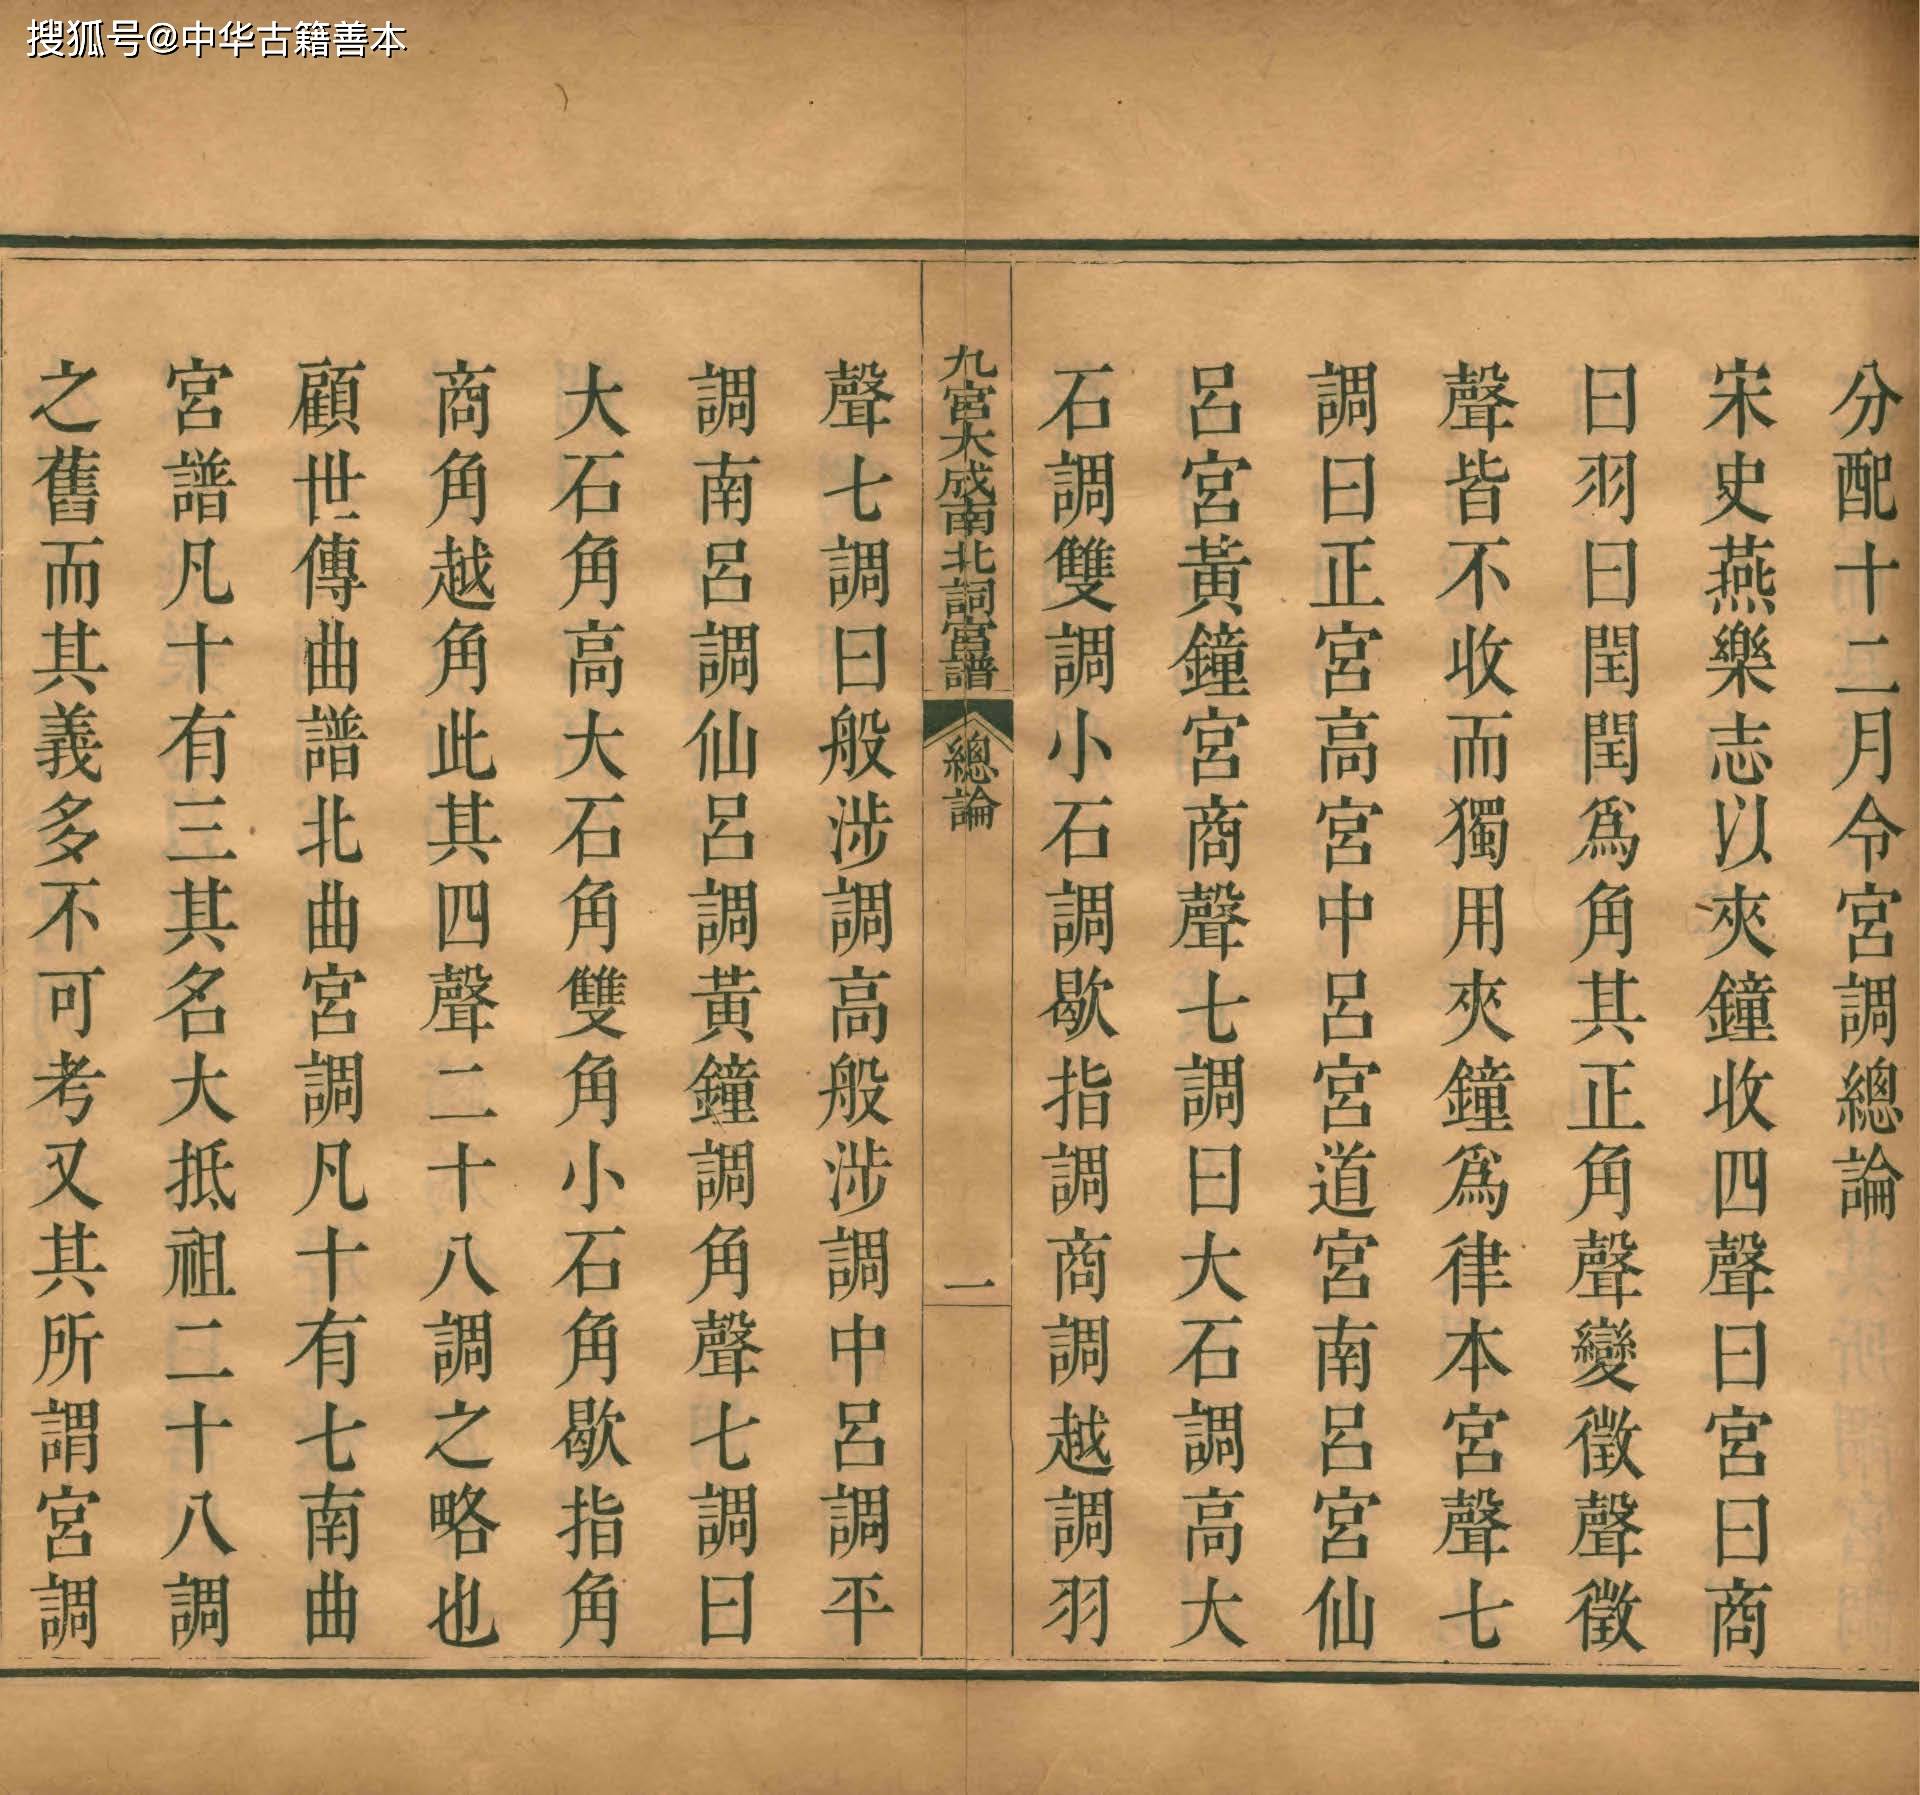 搜狐号@中华古籍善本
分配十二月令宮調總論
宋史燕樂志以夾鐘收四聲曰宮曰商
曰羽曰閏閏爲角其正角聲變徵聲徵
聲皆不收而獨用夾鐘爲律本宮聲七
調曰正宮高宮中呂宮道宮南呂宮仙
呂宮黃鐘宮商聲七調曰大石調高大
石調雙調小石調歇指調商調越調羽
九宮大成南北詞宮譜
總論
一
聲七調曰般涉調高般涉調中呂調平
調南呂調仙呂調黃鐘調角聲七調曰
大石角高大石角雙角小石角歇指角
商角越角此其四聲二十八調之略也
顧世傳曲譜北曲宮調凡十有七南曲
宮譜凡十有三其名大抵祖二十八調
之舊而其義多不可考又其所謂宮調